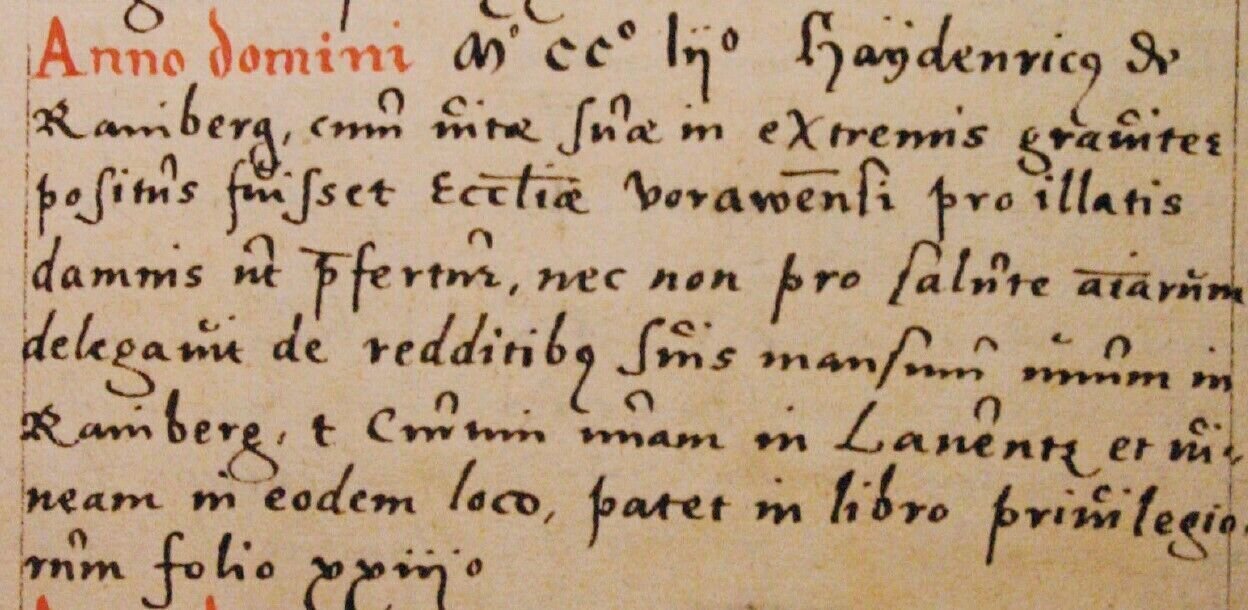 Anno domini Mº ccº lijº Haÿdenricꝯ de
Ramberg, cum vitæ suæ in extremis grauiter
positus fuisset Eccl̄iæ vorawēnsi pro illatis
damnis ut p̄fertur, nec non pro salute aīarum
delegauit de redditibꝯ suis mansum unum in
Ramberg, t Curtim unam in Lauentz et vi-
neam in eodem loco, patet in libro priuilegio-
rum folio xxiiijo